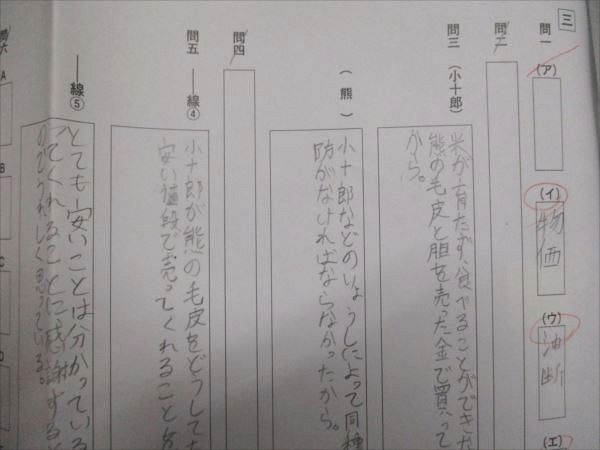 三
問一
(ア)
(イ)
物価
(ウ)
油断
(エ)
問二
問三 (小十郎)
米が育たず、食べることができた
熊の毛皮と胆を売った金で買って
から。
(熊)
小十郎などのりょうしによって同種
防がなければならなかったから。
問四
問五 ――線④
小十郎が熊の毛皮をどうしても
安い値段で売ってくれること
――線⑤
とても安いことは分かっている
ってくれることに感謝する
のでうれしく思っている。
問六
A
B
C
D